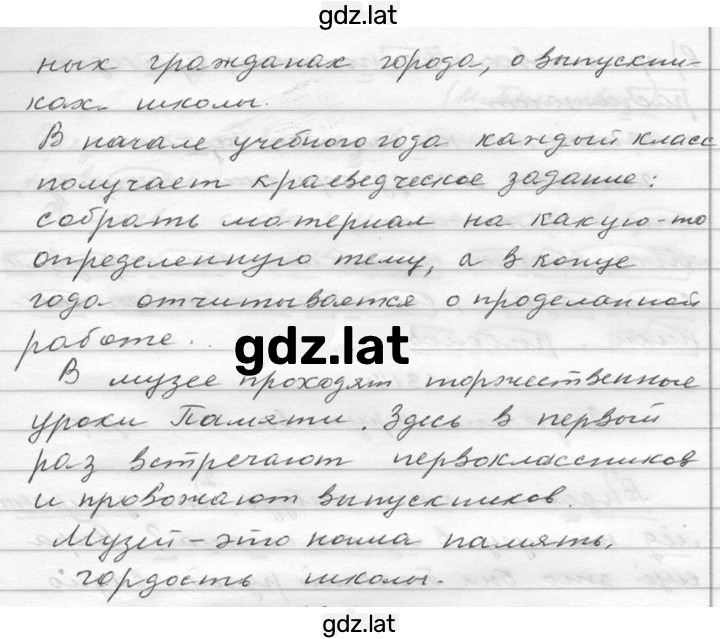 gdz.lat
ных гражданах города, о выпускни-
ках школы.
В начале учебного года каждый класс
получает краеведческое задание:
собрать материал на какую-то
определенную тему, а в конце
года отчитывается о проделанной
работе.
gdz.lat
В музее проходят торжественные
уроки Памяти. Здесь в первый
раз встречают первоклассников
и провожают выпускников.
Музей - это наша память,
гордость школы.
gdz.lat